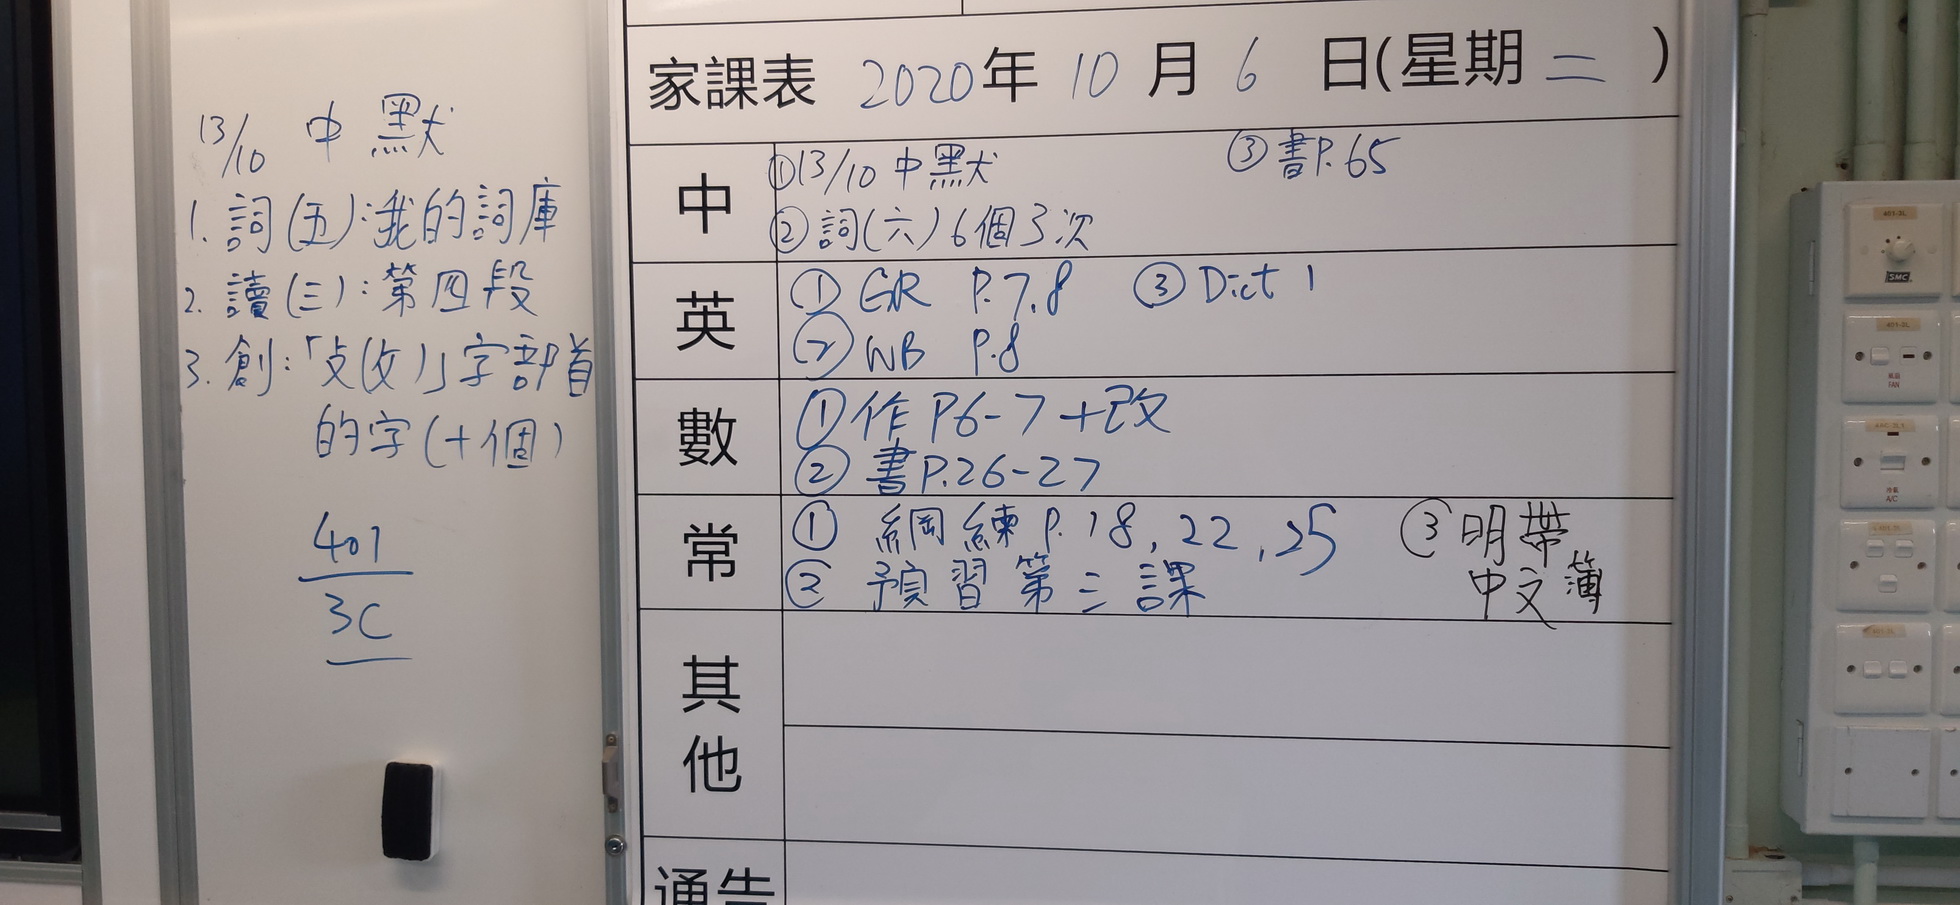 13/10 中默
1. 詞(五):我的詞庫
2. 讀(三):第四段
3. 創:「攴(攵)」字部首
的字(十個)
401
3C
家課表 2020年 10 月 6 日(星期 二 )
中
①13/10 中默 ③書P.65
②詞(六)6個3次
英
① GR P.7.8 ③ Dict 1
② WB P.8
數
①作P6-7+改
②書P.26-27
常
① 綱練P.18,22,25 ③明帶
② 預習第三課 中文簿
其
他
通告
401-2L
SMC
401-2L
FAN
A/C
401-2L